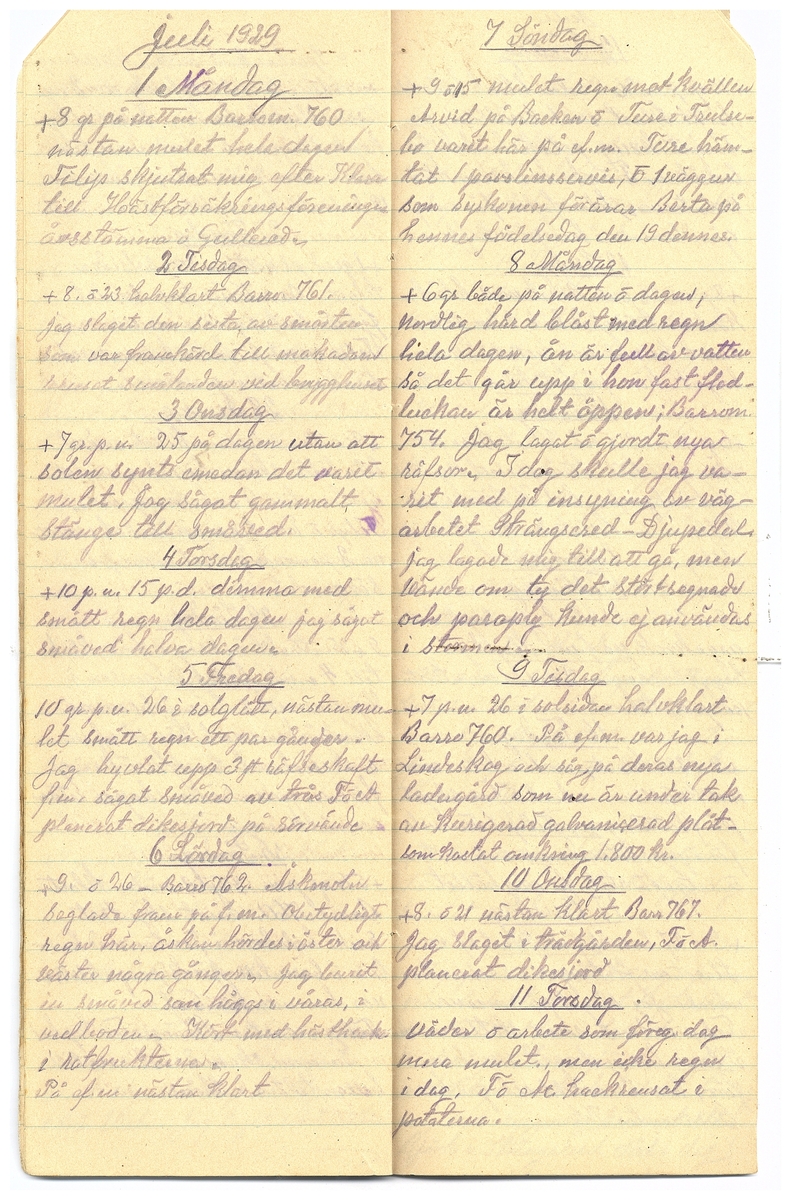 juli 1929
1 Måndag
+8 gr på natten Barrom. 760
nästan mulet hela dagen
Filip skjutsat mig efter Klara
till Hästförsäkringsföreningens
årsstämma i Gullered.
2 Tisdag
+8. ō 23 halvklart Barro. 761.
jag slaget den sista av småsten
som var framkörd till makadam
krusat småleaden ved brygghuset
3 Onsdag
+7 gr. p.n. 25 på dagen utan att
solen synts emedan det varit
mulet. Jag sågat gammalt,
stänge till småved.
4 Torsdag
+10 p.n. 15 p.d. dimma med
smått regn hela dagen jag sågat
småved halva dagen.
5 Fredag
10 gr. p.n. 26 i solglätt, nästan mu-
let smått regn ett par gånger.
Jag hyvlat upp 3 st räfseskaft
f.m. sågat småved av trås F ō A
planerat dikesjord på
6 Lördag
+9. ō 26 – Barro 762. Åskmoln
seglade fram på f.m. Obetydligt
regn här, åskan hördes i öster och
väster några gånger. Jag burit
in småved som höggs i våras, i
vedboden. Kört med hästhack
i rotfrukterna.
På ef.m nästan klart
7 Söndag
+9 ō 15 mulet regn mot kvällen
Arvid på Backen ō Ture i Trulse-
bo varet här på ef.m. Ture häm-
tat 1 porslinsservis, ō 1 väggur
som syskonen förärar Berta på
hennes födelsedag den 19 dennes.
8 Måndag
+6 gr både på natten ō dagen,
Nordlig hård blåst med regn
hela dagen, ån är full av vatten
så det går upp i hon fast flod-
luckan är helt öppen; Barrom
754. Jag lagat ō gjordt nya
räfsor. I dag skulle jag va-
rit med på insyning av väg-
arbetet Strängsered – Djupedal
jag lagade mig till att gå, men
vände om ty det störtregnade
och paraply kunde ej användas
i stormen.
9 Tisdag
+7 p.n. 26 i solsidan halvklart
Barro 760. På ef.m. var jag i
Lindeskog och såg på deras nya
ladugård som nu är under tak
av kurigerad galvaniserad plåt-
som kostat omkring 1.800 kr.
10 Onsdag
+8. ō 21 nästan klart Barr 767.
Jag slaget i trädgården, F ō A.
planerat dikesjord
11 Torsdag.
Väder ō arbete som föreg dag
mera mulet, men icke regn
i dag, F ō M. hackrensat i
potaterna.